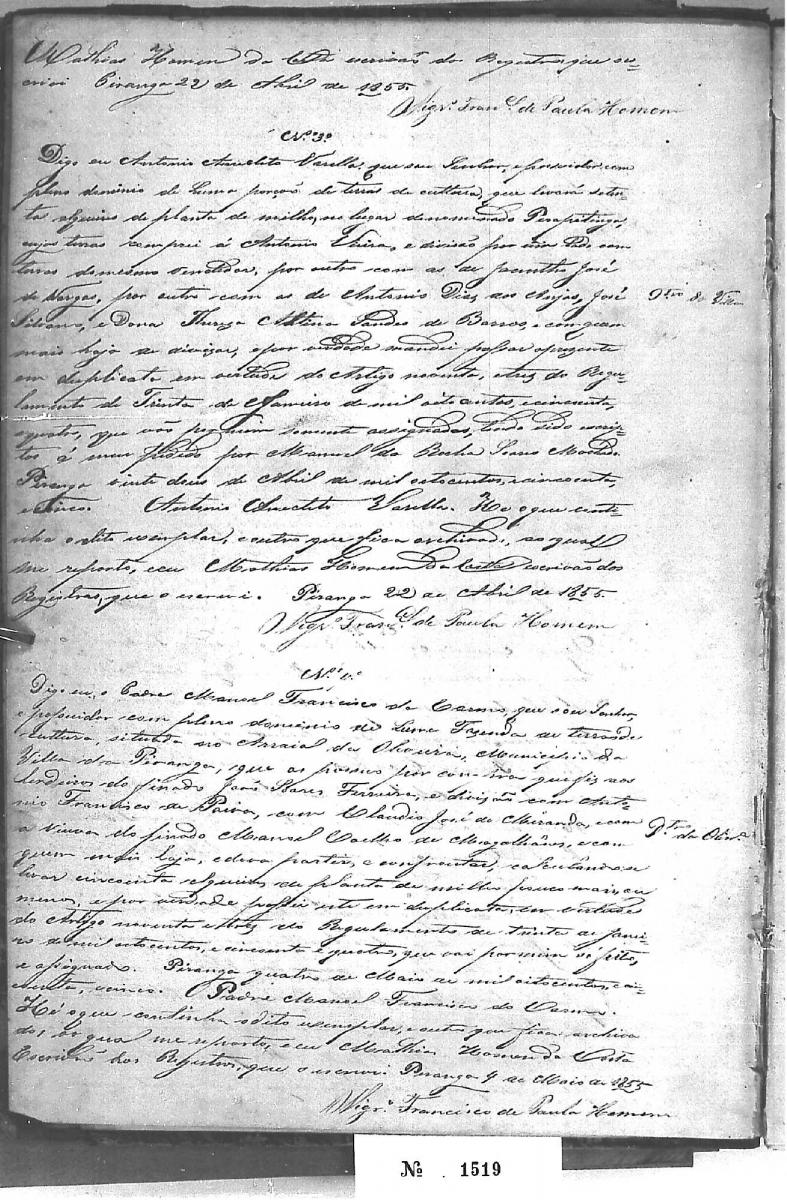 Mathias Homem da Costa escrivaõ do Registro, que es-
crivi Piranga 22 de Abril de 1855.
Vigr.º Fran.co de Paula Homem
N.º 3.º
Digo eu Antonio Anecleto Varella, que sou Senhor, e possuidor com
pleno dominio de huma porçaõ de terras de cultura, que levará seten-
ta alqueires de planta de milho, no lugar denominado Pirapitinga,
cujas terras comprei á Antonio Vieira, e divisão por um lado com
terras do mesmo vendedor, por outro com as de Jacintho José
de Vargas, por outro com as de Antonio Dias dos Anjos, José
Silvano, e Dona Thereza Altina Sandes de Barros, e com quem
mais haja de divizar, e por verdade mandei passar o prezente
em duplicata em virtude do Artigo noventa, e tres do Regu-
lamento de Trinta de Janeiro de mil oito centos, e cincoenta,
e quatro, que vão por mim somente assignados, tendo sido escrip-
tos á meu pedido por Manuel da Rocha Soares Machado.
Piranga vinte dous de Abril de mil oitocentos, e cincoenta,
e cinco. Antonio Anecleto Varella. Hé o que conti-
nha o dito exemplar, e outro que fica archivado, ao qual
me reporto, e eu Mathias Homem da Costa escrivaõ dos
Registros, que o escrevi. Piranga 22 de Abril de 1855.
Vigr.º Fran.co de Paula Homem
N.º 4.º
Digo eu, o Padre Manoel Francisco do Carmo, que sou Senhor,
e possuidor com pleno dominio de huma Fazenda de terras de
Cultura, situada no Arraial da Oliveira, Municipio da
Villa da Piranga, que as possuo por compra que fiz aos
herdeiros do finado João Soares Ferreira, e divisão com Anto-
nio Francisco de Paiva, com Claudio José de Miranda, e com
a Viuva do finado Manoel Coelho de Magalhães, e com
quem mais haja, e deva partir, e confrontar, calculando-se
levar cincoenta alqueires de planta de milho pouco mais, ou
menos, e por verdade passei este em duplicata, em virtude
do Artigo noventa e tres do Regulamento de trinta de Janei-
ro de mil oitocentos, e cincoenta e quatro, que vai por mim só feito,
e assignado. Piranga quatro de Maio de mil oitocentos, e cin-
coenta, e cinco. O Padre Manoel Francisco do Carmo.
Hé o que continha o dito exemplar, e outro que fica archiva-
do, ao qual me reporto, e eu Mathias Homem da Costa
Escrivaõ dos Registros, que o escrevi Piranga 4 de Maio de 1855
Vigr.º Francisco de Paula Homem
da Oliv.ª
Nº 1519